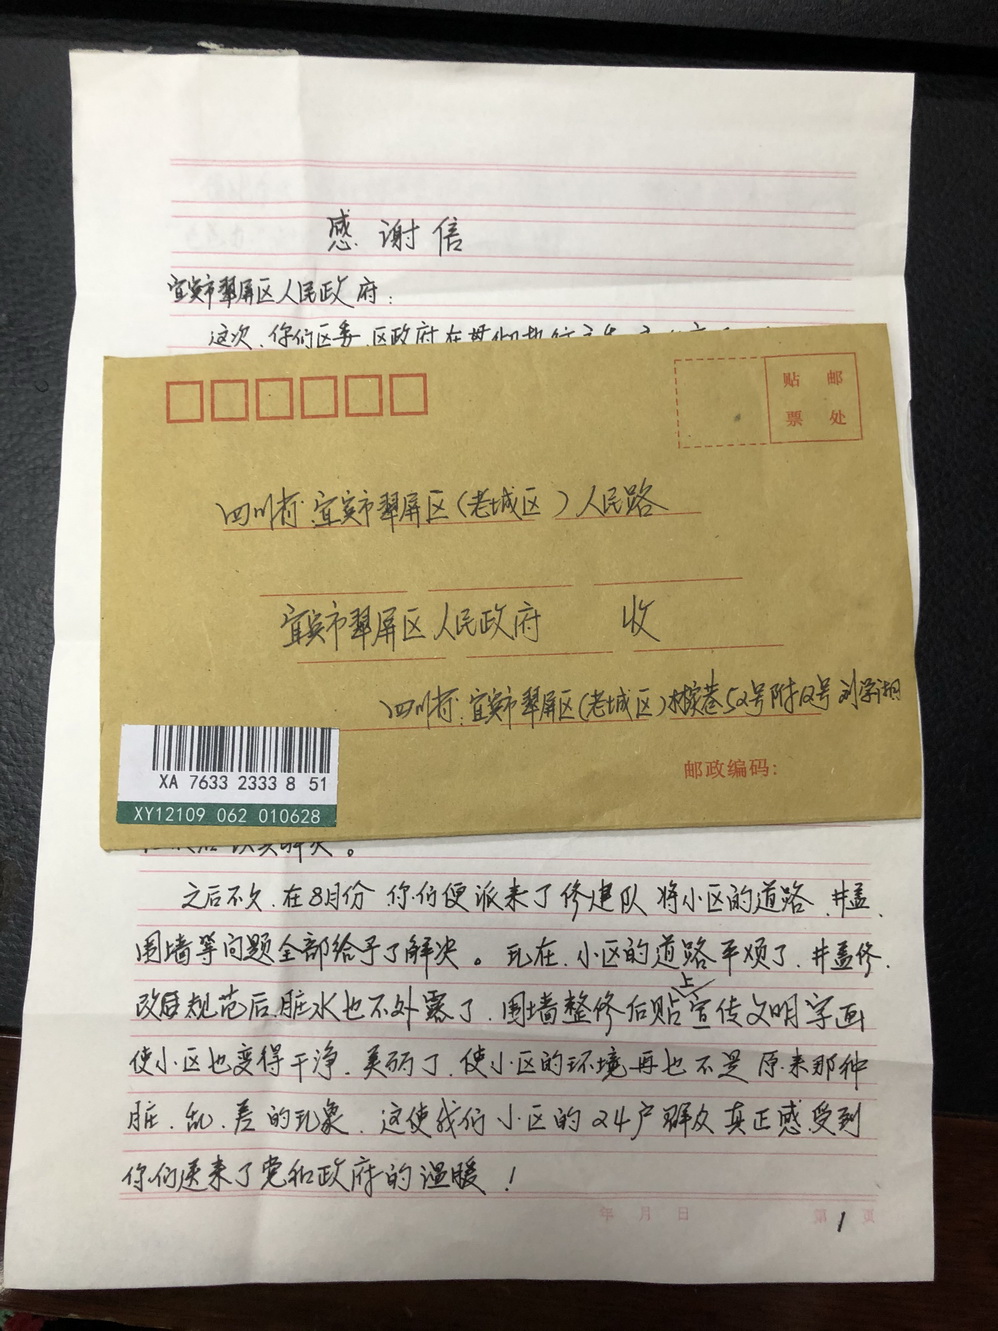 感谢信
宜宾市翠屏区人民政府：
这次、你们区委、区政府在贯彻执行
贴 邮
票 处
四川省、宜宾市翠屏区（老城区）人民路
宜宾市翠屏区人民政府 收
四川省、宜宾市翠屏区（老城区）巷52号附12号 刘学湖
邮政编码：
XA 7633 2333 8 51
XY12109 062 010628
之后不久、在8月份 你们便派来了修建队 将小区的道路、井盖、
围墙等问题全部给予了解决。现在、小区的道路平顺了、井盖修、
改造规范后、脏水也不外露了、围墙整修后贴上宣传文明字画
使小区也变得干净、美丽了、使小区的环境再也不是 原来那种
脏、乱、差的现象、这使我们小区的24户群众真正感受到
你们送来了党和政府的温暖！
年 月 日 第1页